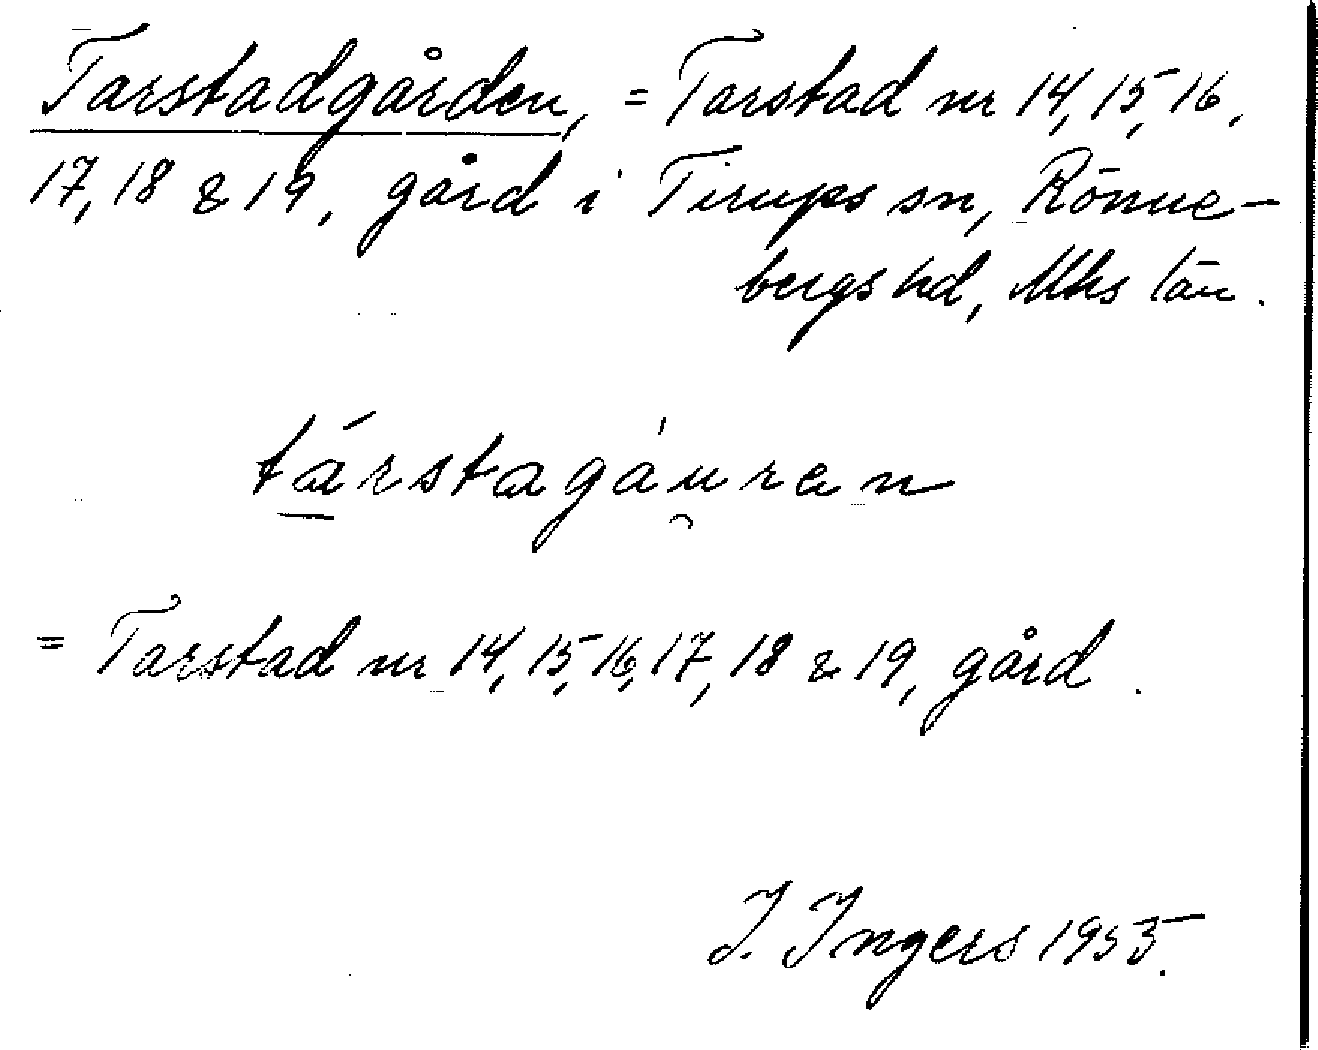 Tarstadgården, = Tarstad nr 14, 15, 16,
17, 18 & 19, gård i Tirups sn, Rönne-
bergs hd, Mhs län.
társtagáu̯ran
= Tarstad nr 14, 15, 16, 17, 18 & 19, gård.
I. Ingers 1955.